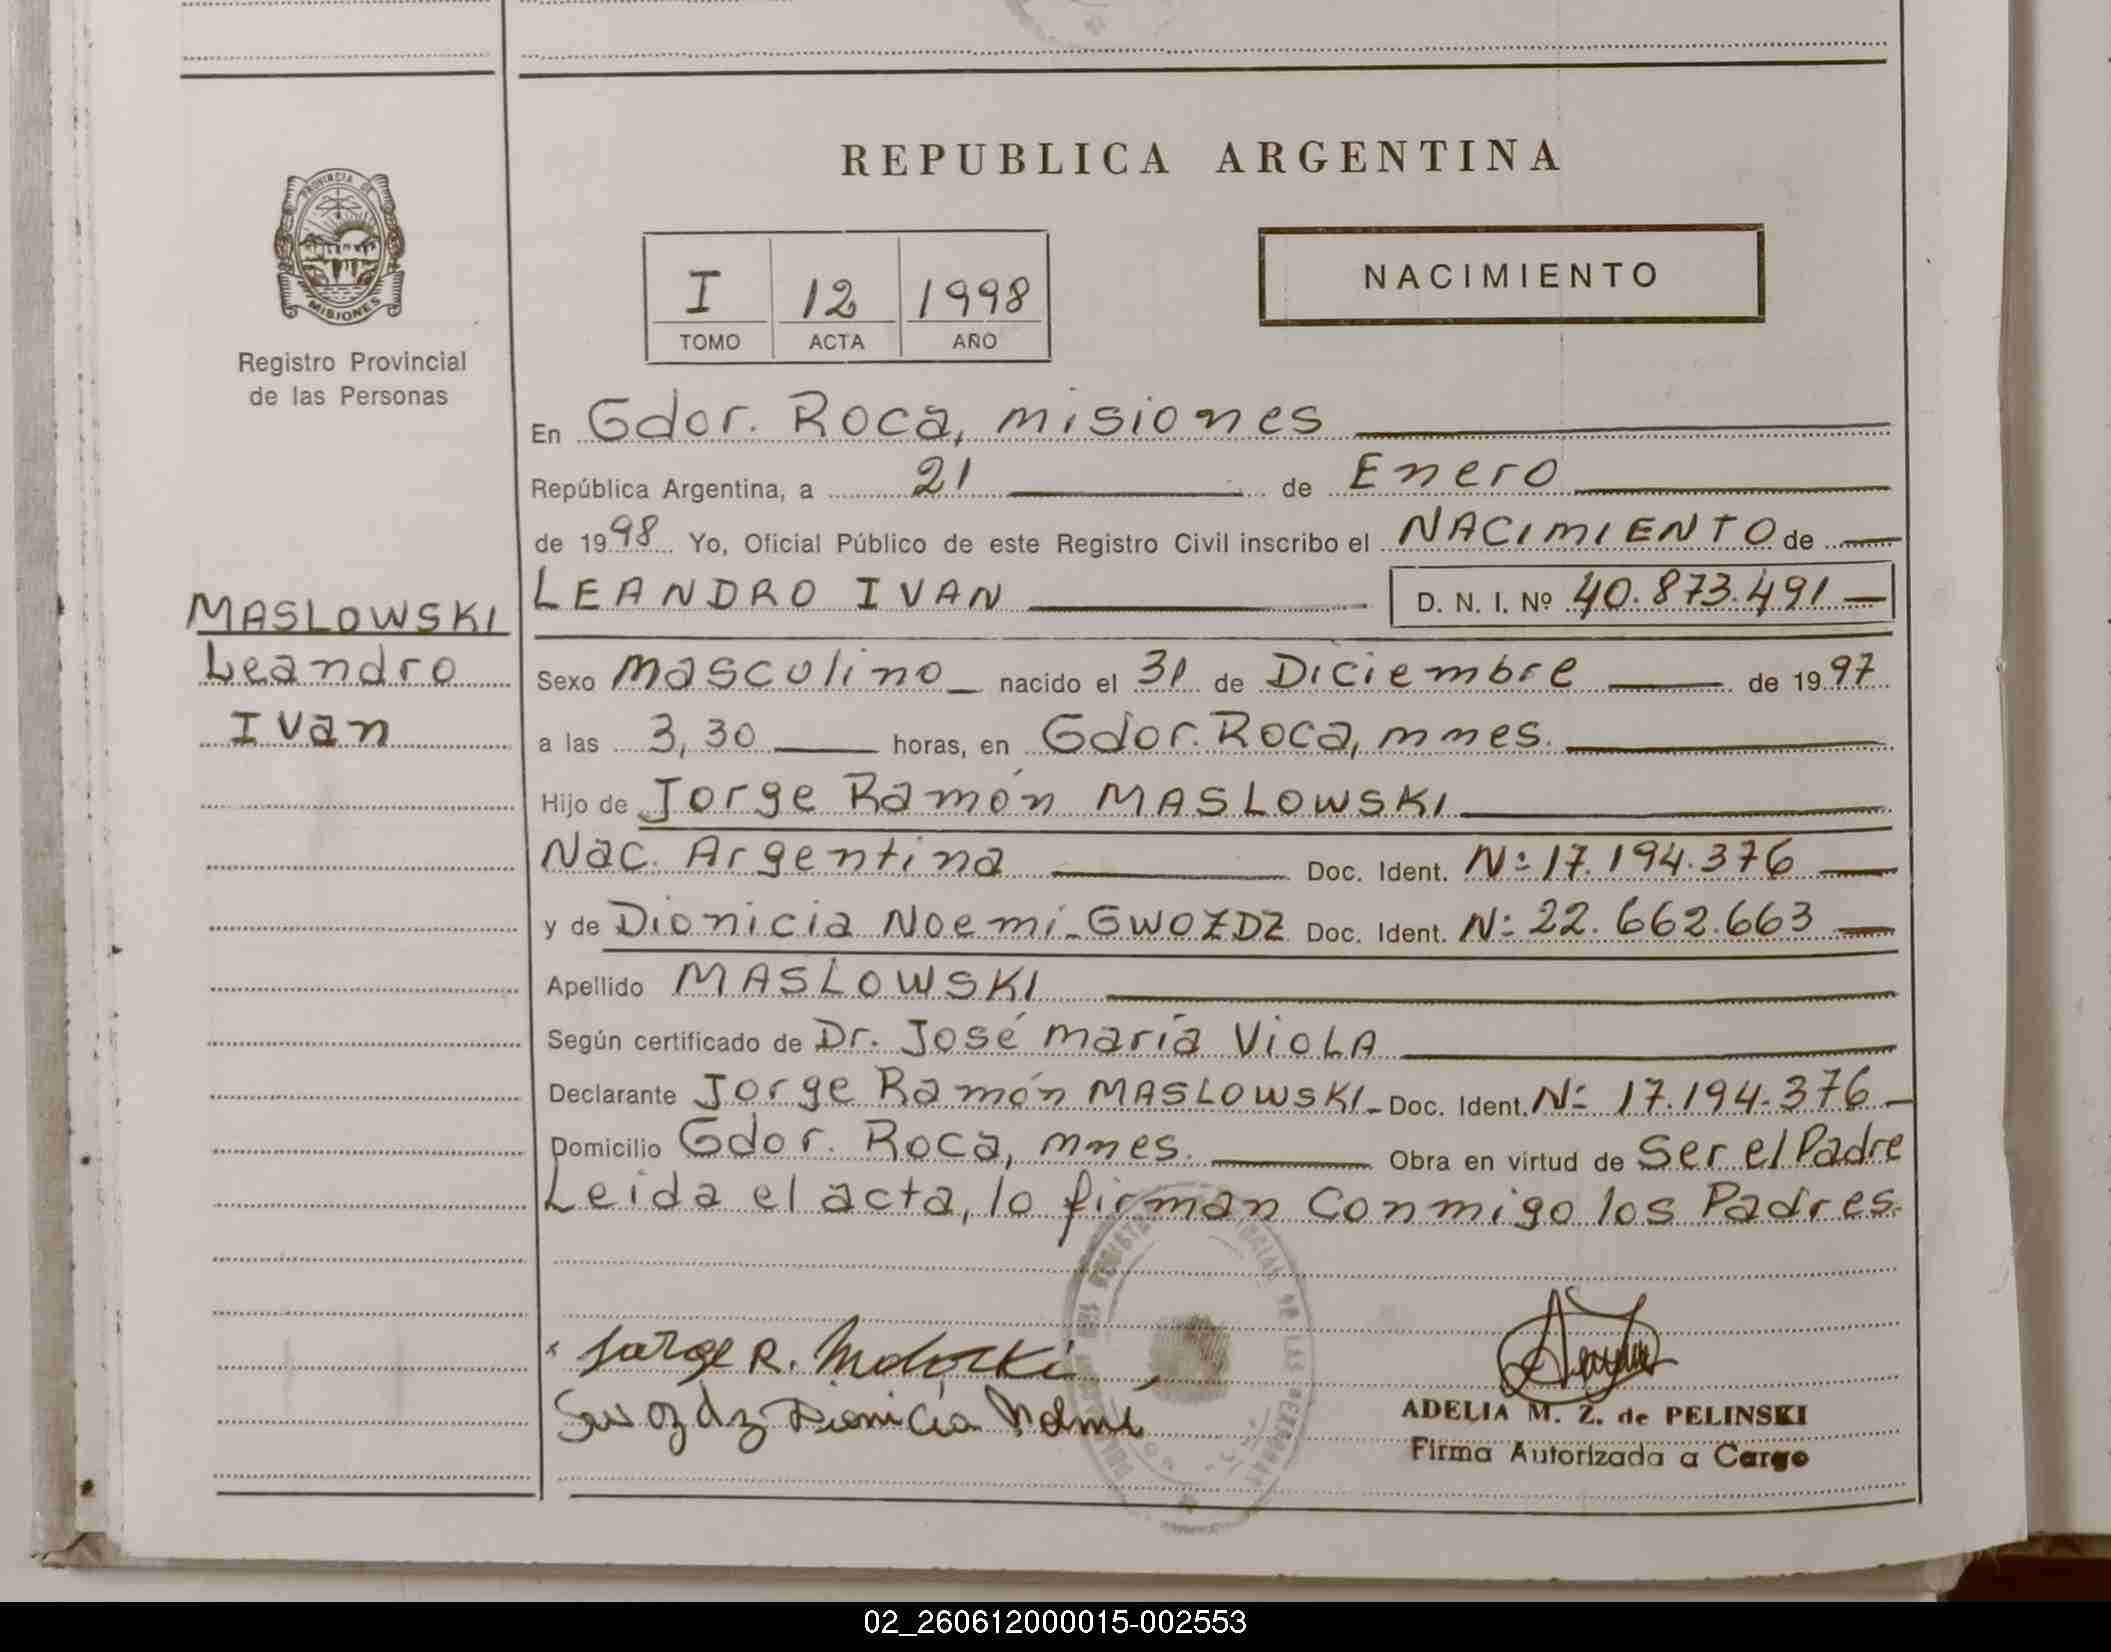 REPUBLICA ARGENTINA
PROVINCIA DE
MISIONES
Registro Provincial
de las Personas
I 12 1998
TOMO ACTA AÑO
NACIMIENTO
En Gdor. Roca, misiones
República Argentina, a 21 de Enero
de 1998 Yo, Oficial Público de este Registro Civil inscribo el NACIMIENTO de
MASLOWSKI
Leandro
Ivan
LEANDRO IVAN D. N. I. Nº 40.873.491
Sexo Masculino nacido el 31 de Diciembre de 1997
a las 3,30 horas, en Gdor. Roca, mnes.
Hijo de Jorge Ramón MASLOWSKI
Nac. Argentina Doc. Ident. Nº 17.194.376
y de Dionicia Noemi GWOZDZ Doc. Ident. Nº 22.662.663
Apellido MASLOWSKI
Según certificado de Dr. José maría VIOLA
Declarante Jorge Ramón MASLOWSKI Doc. Ident. Nº 17.194.376
Domicilio Gdor. Roca, mnes. Obra en virtud de Ser el Padre
Leida el acta, lo firman conmigo los Padres.
Jorge R.
Gwozdz Dionicia Noemi
ADELIA M. Z. de PELINSKI
Firma Autorizada a Cargo
02_260612000015-002553